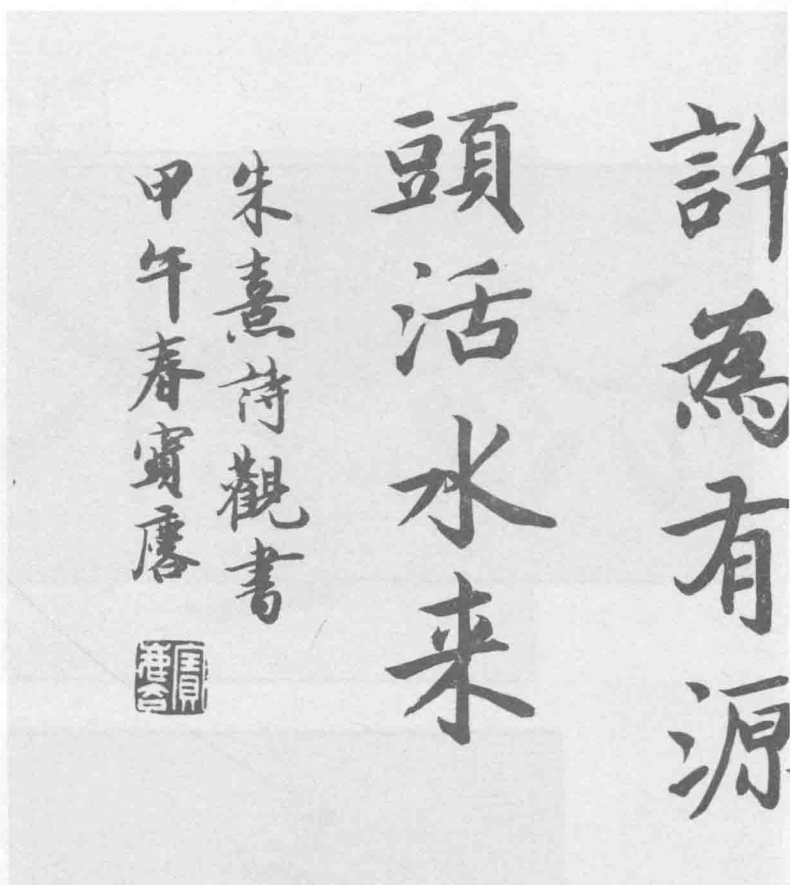 許為有源
頭活水来
朱熹詩觀書
甲午春